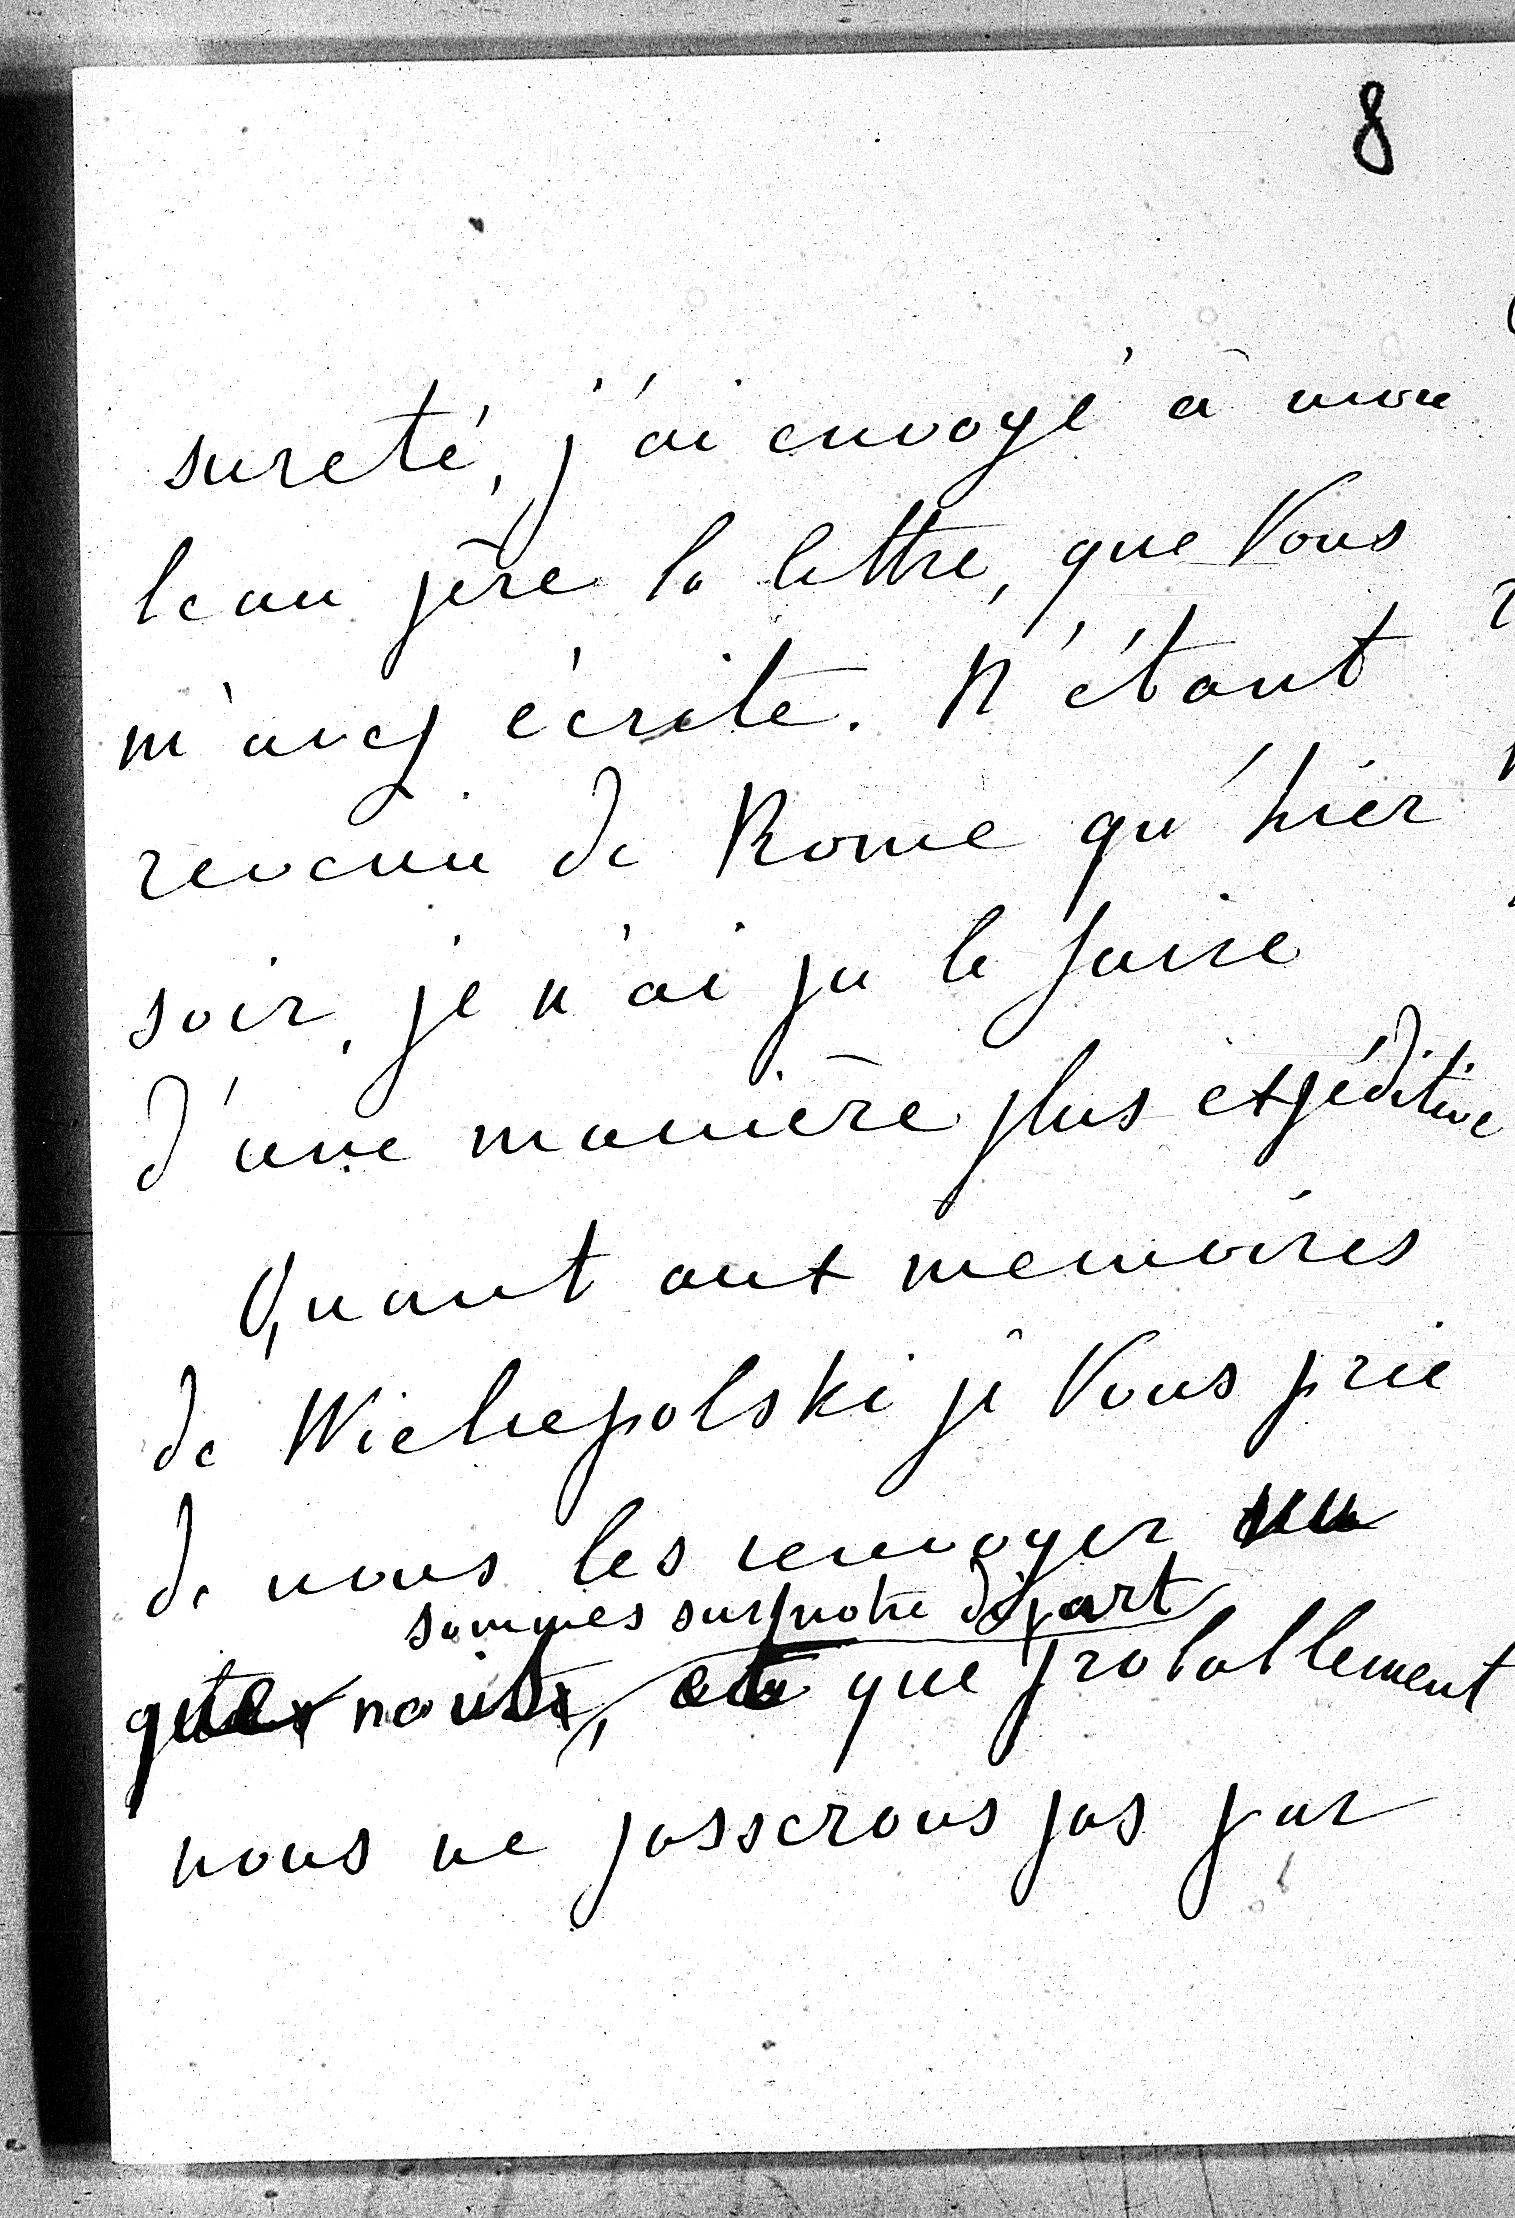 8
sureté, j'ai envoyé à mon
beau père la lettre, que Vous
m'avez écrite. N'étant
revenu de Rome qu'hier
soir, je n'ai pu le faire
d'une manière plus expéditive
Quant aux memoires
de Wielepolski je Vous prie
de nous les renvoyer
sommes sur notre départ
nous, et que probablement
nous ne passerons pas par